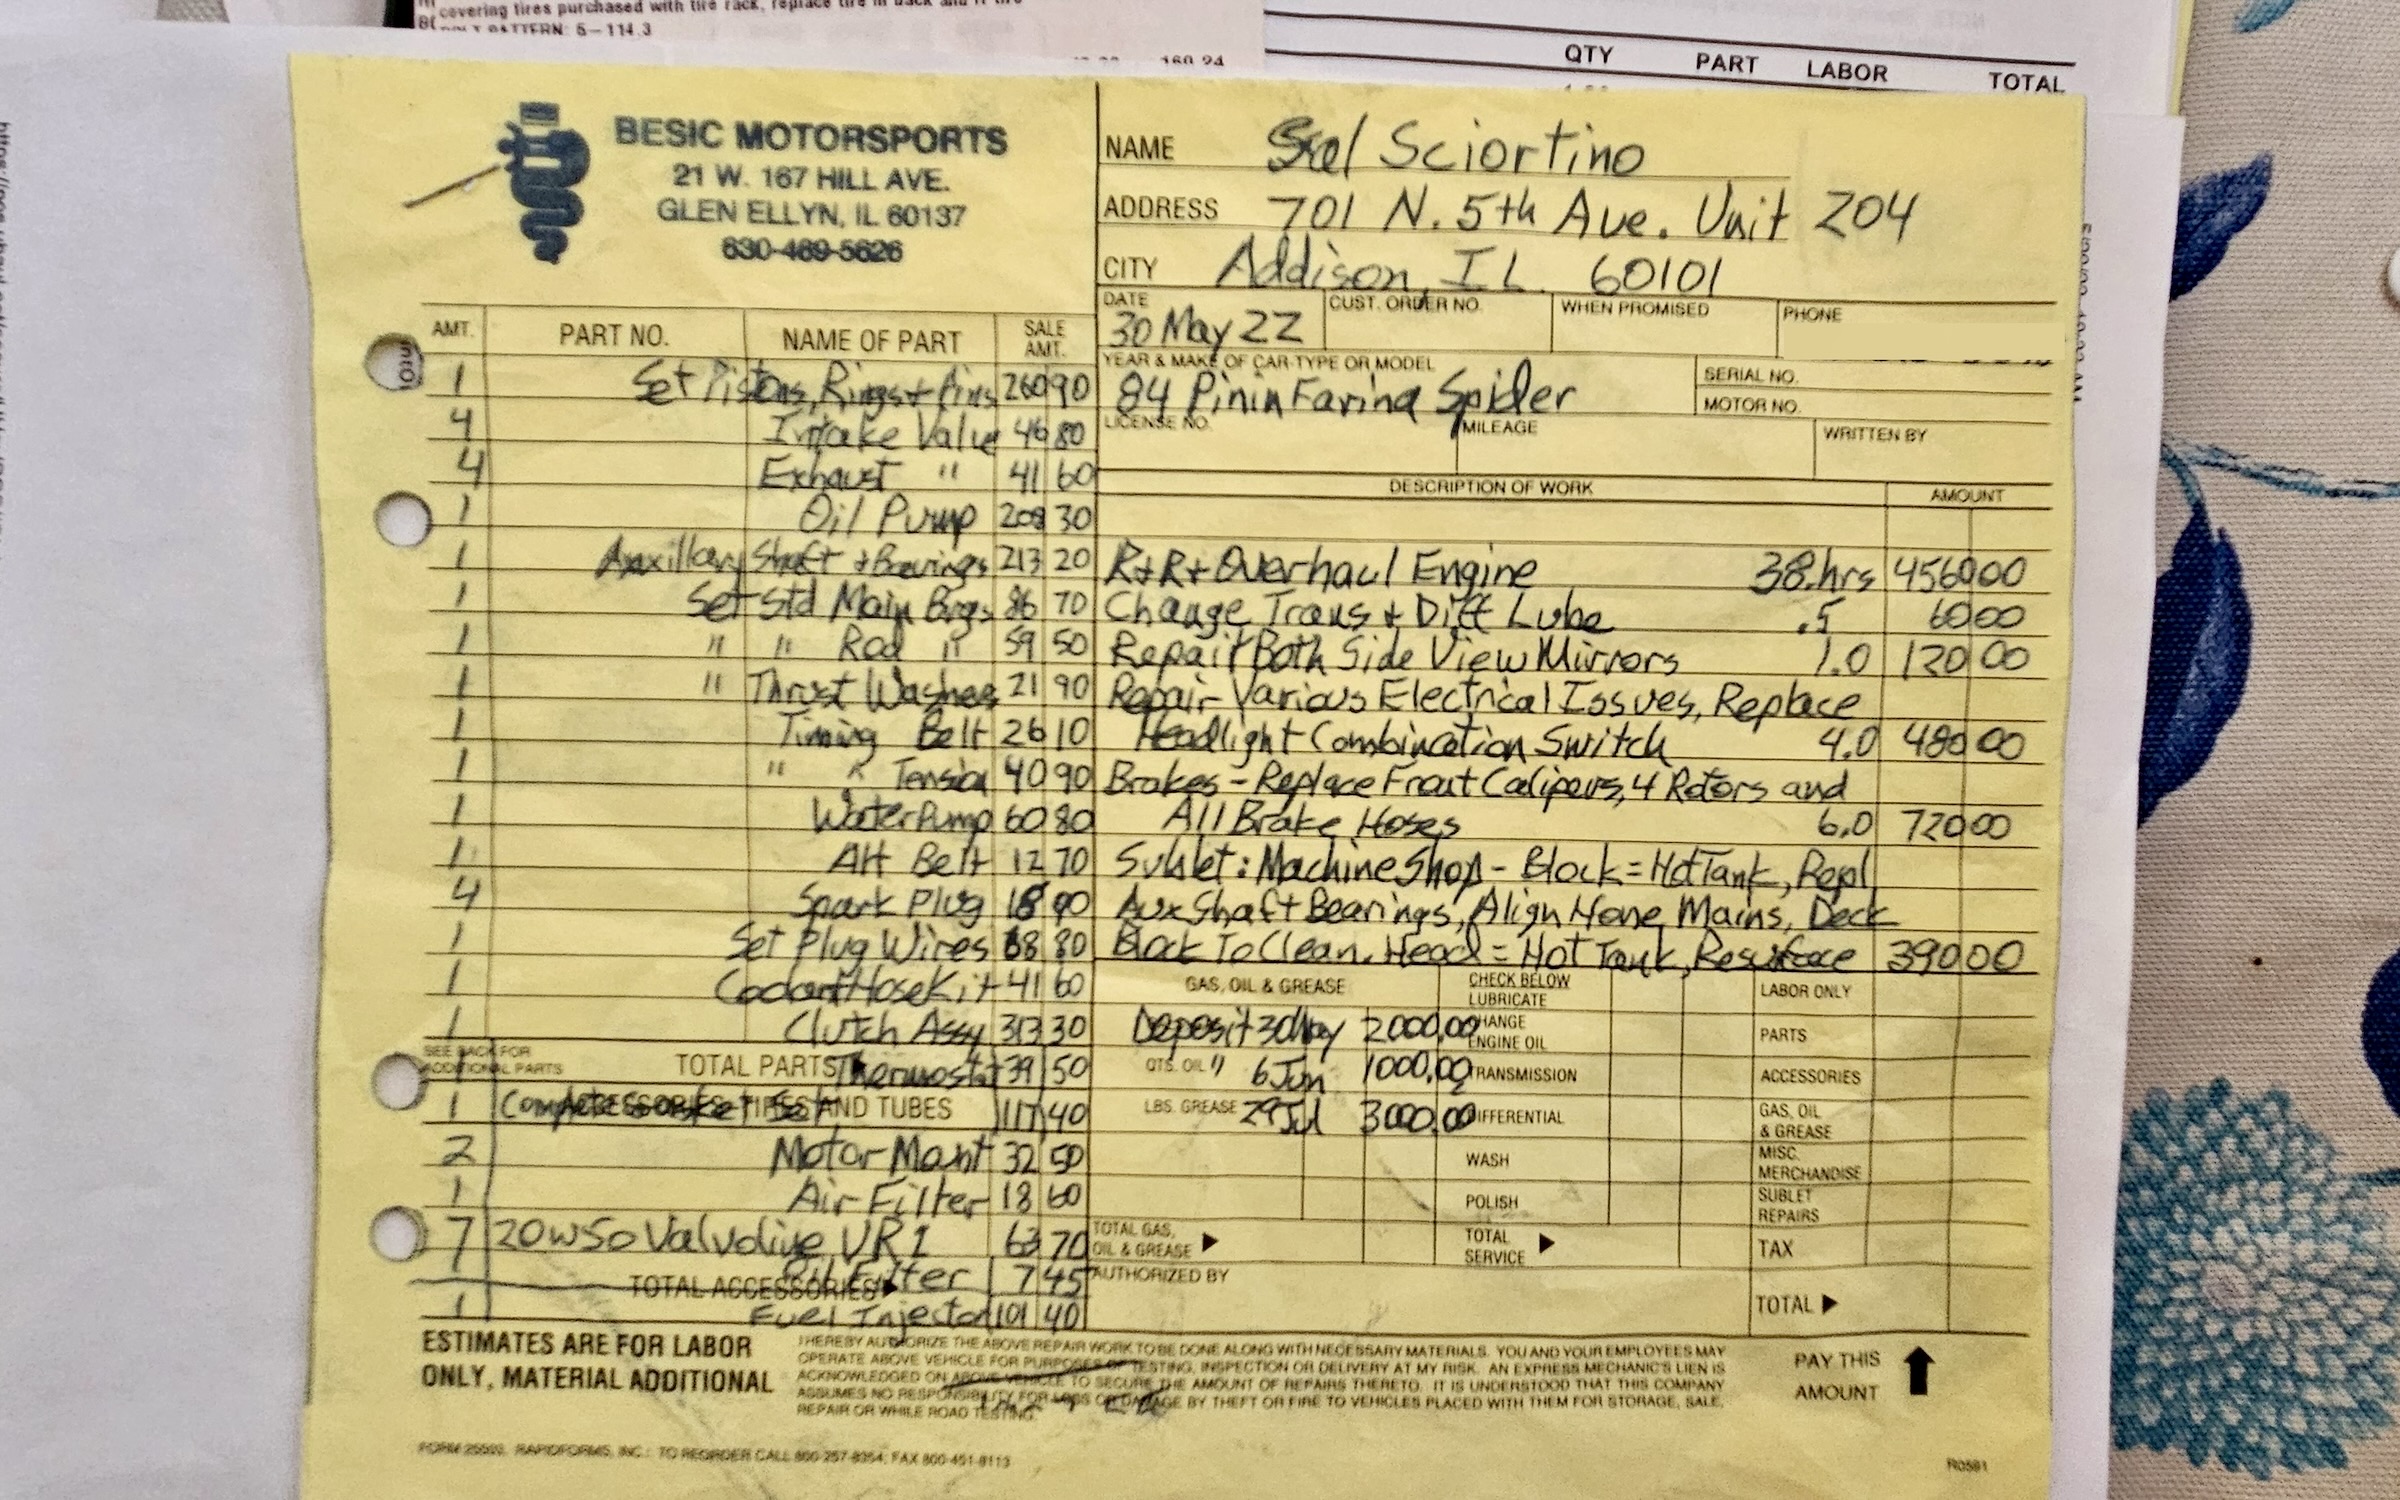 covering tires purchased with tire rack, replace tire in back and
BOLT PATTERN: 5-114.3
160.24
QTY PART LABOR TOTAL
BESIC MOTORSPORTS
21 W. 167 HILL AVE.
GLEN ELLYN, IL 60137
630-469-5626
NAME Sciortino
ADDRESS 701 N. 5th Ave. Unit 204
CITY Addison, IL. 60101
DATE 30 May 22
CUST. ORDER NO.
WHEN PROMISED
PHONE
YEAR & MAKE OF CAR-TYPE OR MODEL
84 PininFarina Spider
SERIAL NO.
MOTOR NO.
LICENSE NO.
MILEAGE
WRITTEN BY
AMT. PART NO. NAME OF PART SALE AMT.
1 Set Pistons, Rings + Pins 260 90
4 Intake Valve 46 80
4 Exhaust " 41 60
1 Oil Pump 208 30
1 Auxillary Shaft + Bearings 213 20
1 Set Std Main Brgs 86 70
1 " " Rod " 59 50
1 " Thrust Washers 21 90
1 Timing Belt 26 10
1 " " Tension 40 90
1 Water Pump 60 80
1 Alt Belt 12 70
4 Spark Plug 18 00
1 Set Plug Wires 68 80
1 Coolant Hose Kit 41 60
1 Clutch Assy 313 30
SEE BACK FOR ADDITIONAL PARTS
TOTAL PARTS
1 Thermostat 39 50
ACCESSORIES, TIRES AND TUBES
1 Complete Gasket Set 117 40
2 Motor Mount 32 50
1 Air Filter 18 60
7 20w50 Valvoline VR1 63 70
Oil Filter 7 45
TOTAL ACCESSORIES
1 Fuel Injector 101 40
DESCRIPTION OF WORK AMOUNT
R+R+Overhaul Engine 38.hrs 4560 00
Change Trans + Diff Lube .5 60 00
Repair Both Side View Mirrors 1.0 120 00
Repair- Various Electrical Issues, Replace
Headlight Combination Switch 4.0 480 00
Brakes - Replace Front Calipers, 4 Rotors and
All Brake Hoses 6.0 720 00
Sublet: Machine Shop - Block = Hot Tank, Repl
Aux Shaft Bearings, Align Hone Mains, Deck
Block To Clean. Head = Hot Tank, Resurface 390 00
GAS, OIL & GREASE
CHECK BELOW
LUBRICATE
LABOR ONLY
Deposit 30 May 2000.00
CHANGE ENGINE OIL
PARTS
QTS. OIL " 6 Jun 1000.00
TRANSMISSION
ACCESSORIES
LBS. GREASE 29 Jul 3000.00
DIFFERENTIAL
GAS, OIL & GREASE
WASH
MISC. MERCHANDISE
POLISH
SUBLET REPAIRS
TOTAL GAS, OIL & GREASE
TOTAL SERVICE
TAX
AUTHORIZED BY
TOTAL
ESTIMATES ARE FOR LABOR
ONLY, MATERIAL ADDITIONAL
I HEREBY AUTHORIZE THE ABOVE REPAIR WORK TO BE DONE ALONG WITH NECESSARY MATERIALS. YOU AND YOUR EMPLOYEES MAY
OPERATE ABOVE VEHICLE FOR PURPOSES OF TESTING, INSPECTION OR DELIVERY AT MY RISK. AN EXPRESS MECHANIC'S LIEN IS
ACKNOWLEDGED ON ABOVE VEHICLE TO SECURE THE AMOUNT OF REPAIRS THERETO. IT IS UNDERSTOOD THAT THIS COMPANY
ASSUMES NO RESPONSIBILITY FOR LOSS OR DAMAGE BY THEFT OR FIRE TO VEHICLES PLACED WITH THEM FOR STORAGE, SALE,
REPAIR OR WHILE ROAD TESTING.
PAY THIS
AMOUNT
FORM 25593 RAPIDFORMS, INC.: TO REORDER CALL 800-257-8354; FAX 800-451-8113
R0591